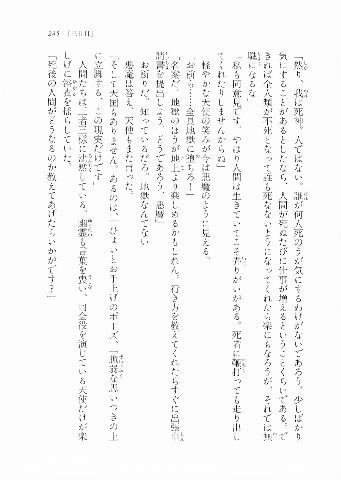 285 「三日目」
「然り、我は死神。人ではない。誰が何人死のうが気にするわけがないであろう。少しばかり
気にすることがあるとしたなら、人間が死ぬたびに仕事が増えるということくらいである。で
きれば全人類が不死となって誰も死なないようになってくれたら楽にもなろうが、それでは無
職になるな」
「私も同意見です。やはり人間は生きていてこそ弄りがいがある。死者に鞭打っても走り出し
てくれたりしませんからね」
軽やかな天使の笑みが今は悪魔のように見える。
「お前ら……全員地獄に堕ちろ！」
「名案だ。地獄のほうが地上より楽しめるかもしれん。行き方を教えてくれたらすぐに出張申
請書を提出しよう。どうであろう、悪魔」
「お断りだ。知っているだろ、地獄なんてない」
悪魔は答え、天使もまた言った。
「そして天国もありません。あるのは、――ひょいとお手上げのポーズ、「脆弱な思いつきの上
に立脚する、この現実だけです」
人間たちは三者三様に沈黙している。幽霊も言葉を喪い、司会役を演じている天使だけが楽
しげに浴衣を揺らしていた。
「死後の人間がどうなるのか教えてあげたらいかがです？」